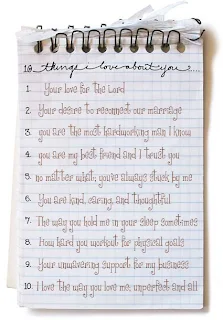 10 things i love about you...
1. Your love for the Lord
2. Your desire to reconnect our marriage
3. you are the most hardworking man I know
4. you are my best friend and I trust you
5. no matter what, you've always stuck by me
6. You are kind, caring, and thoughtful
7. The way you hold me in your sleep sometimes
8. How hard you workout for physical goals
9. Your unwavering support for my business
10. I love the way you love me, unperfect and all